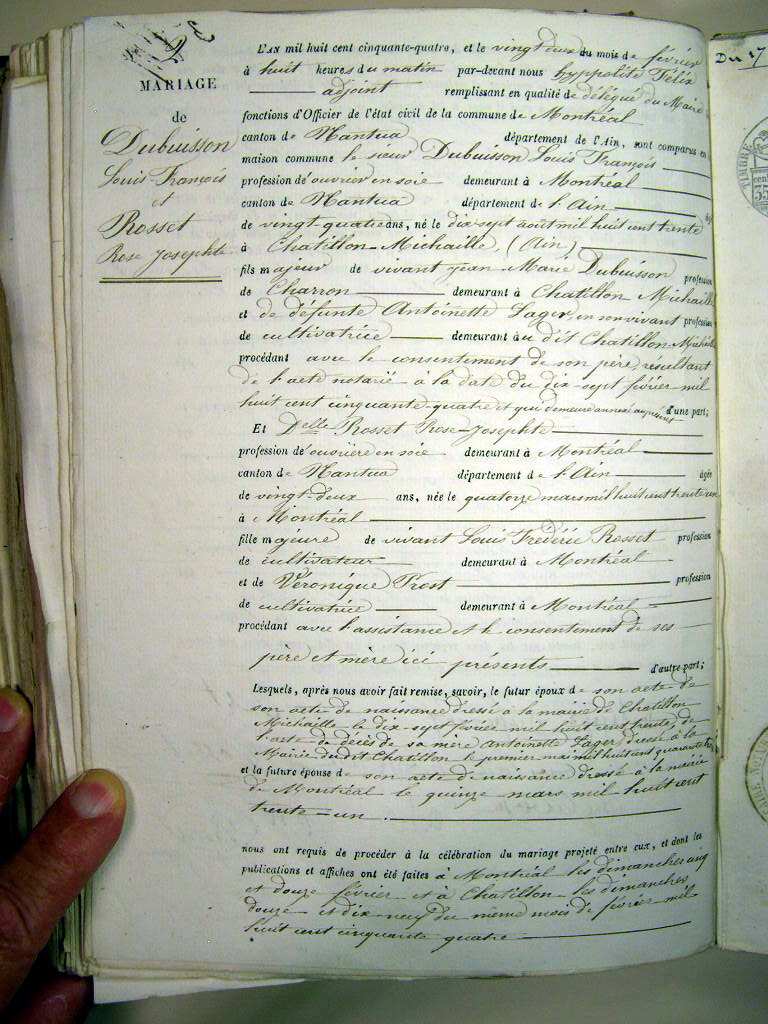 MARIAGE
de
Dubuisson
Louis-François
et
Rosset
Rose Josephte
L'AN mil huit cent cinquante-quatre, et le vingt deux du mois de février
à huit heures du matin par-devant nous hyppolite Félix
adjoint remplissant en qualité de délégué du Maire
fonctions d'Officier de l'état civil de la commune de Montréal
canton de Nantua département de l'Ain, sont comparus en
maison commune le sieur Dubuisson Louis François
profession d'ouvrier en soie demeurant à Montréal
canton de Nantua département de l'Ain
de vingt-quatre ans, né le dix-sept août mil huit cent trente
à Chatillon-Michaille, (Ain)
fils majeur de vivant jean Marie Dubuisson profession
de Charron demeurant à Chatillon Michaille
et de défunte Antoinette Lager, en son vivant profession
de cultivatrice demeurant au dit Chatillon-Michaille
procédant avec le consentement de son père, résultant
de l'acte notarié à la date du dix-sept février mil
huit cent cinquante-quatre et qui demeure annexé au présent d'une part;
Et Delle Rosset Rose-Josephte
profession d'ouvrière en soie demeurant à Montréal
canton de Nantua département de l'Ain âgée
de vingt-deux ans, née le quatorze mars mil huit cent trente un
à Montréal
fille majeure de vivant Louis Frédéric Rosset profession
de cultivateur demeurant à Montréal
et de Véronique Prost profession
de cultivatrice demeurant à Montréal
procédant avec l'assistance et le consentement de ses
père et mère ici présents d'autre part;
Lesquels, après nous avoir fait remise, savoir, le futur époux de son acte de
son acte de naissance dressé à la mairie de Chatillon
Michaille le dix-sept mil huit cent trente, de
l'acte de décès de sa mère Antoinette Lager, dressé à la
Mairie du dit Chatillon le premier mai mil huit cent quarante
et la future épouse de son acte de naissance dressé à la mairie
de Montréal le quinze mars mil huit cent
trente-un.
nous ont requis de procéder à la célébration du mariage projeté entre eux, et dont les
publications et affiches ont été faites à Montréal les dimanches cinq
et douze février et à Chatillon les dimanches
douze et dix-neuf du même mois de février mil
huit cent cinquante quatre
Du 17
TIMBRE
35